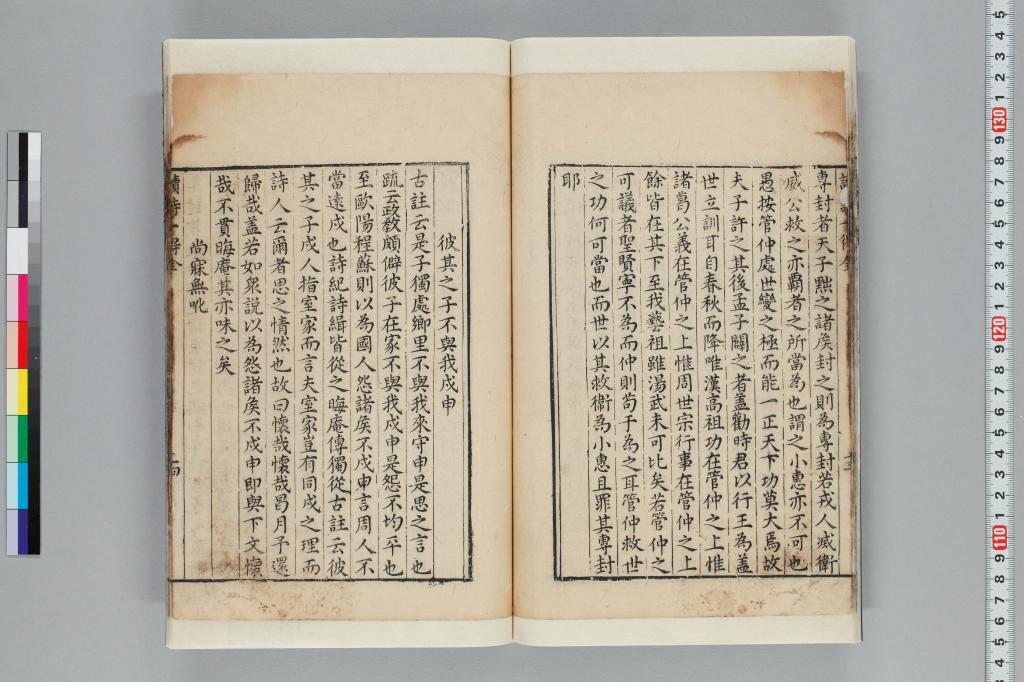 專封者天子黜之諸矦封之則為專封若戎人滅衛
威公救之亦覇者之所當為也謂之小惠亦不可也
愚按管仲處世變之極而能一正天下功莫大焉故
夫子許之其後孟子闢之者盖勸時君以行王為盖
世立訓耳自春秋而降唯漢高祖功在管仲之上惟
諸葛公義在管仲之上惟周世宗行事在管仲之上
餘皆在其下至我藝祖雖湯武未可比矣若管仲之
可議者聖賢寧不為而仲則苟于為之耳管仲救世
之功何可當也而世以其救衛為小惠且罪其專封
耶
彼其之子不與我戍申
古註云是子獨處鄉里不與我來守申是思之言也
疏云政教頗僻彼子在家不與我戍申是怨不均平也
至歐陽程蘇則以為國人怨諸矦不戍申言周人不
當逺戍也詩紀詩緝皆從之晦庵傳獨從古註云彼
其之子戍人指室家而言夫室家豈有同戍之理而
詩人云爾者思之情然也故曰懷哉懷哉曷月予還
歸哉盖若如衆説以為怨諸矦不戍申即與下文懷
哉不貫晦庵其亦味之矣
尚寐無吪
讀詩一得全
十四
130
120
110